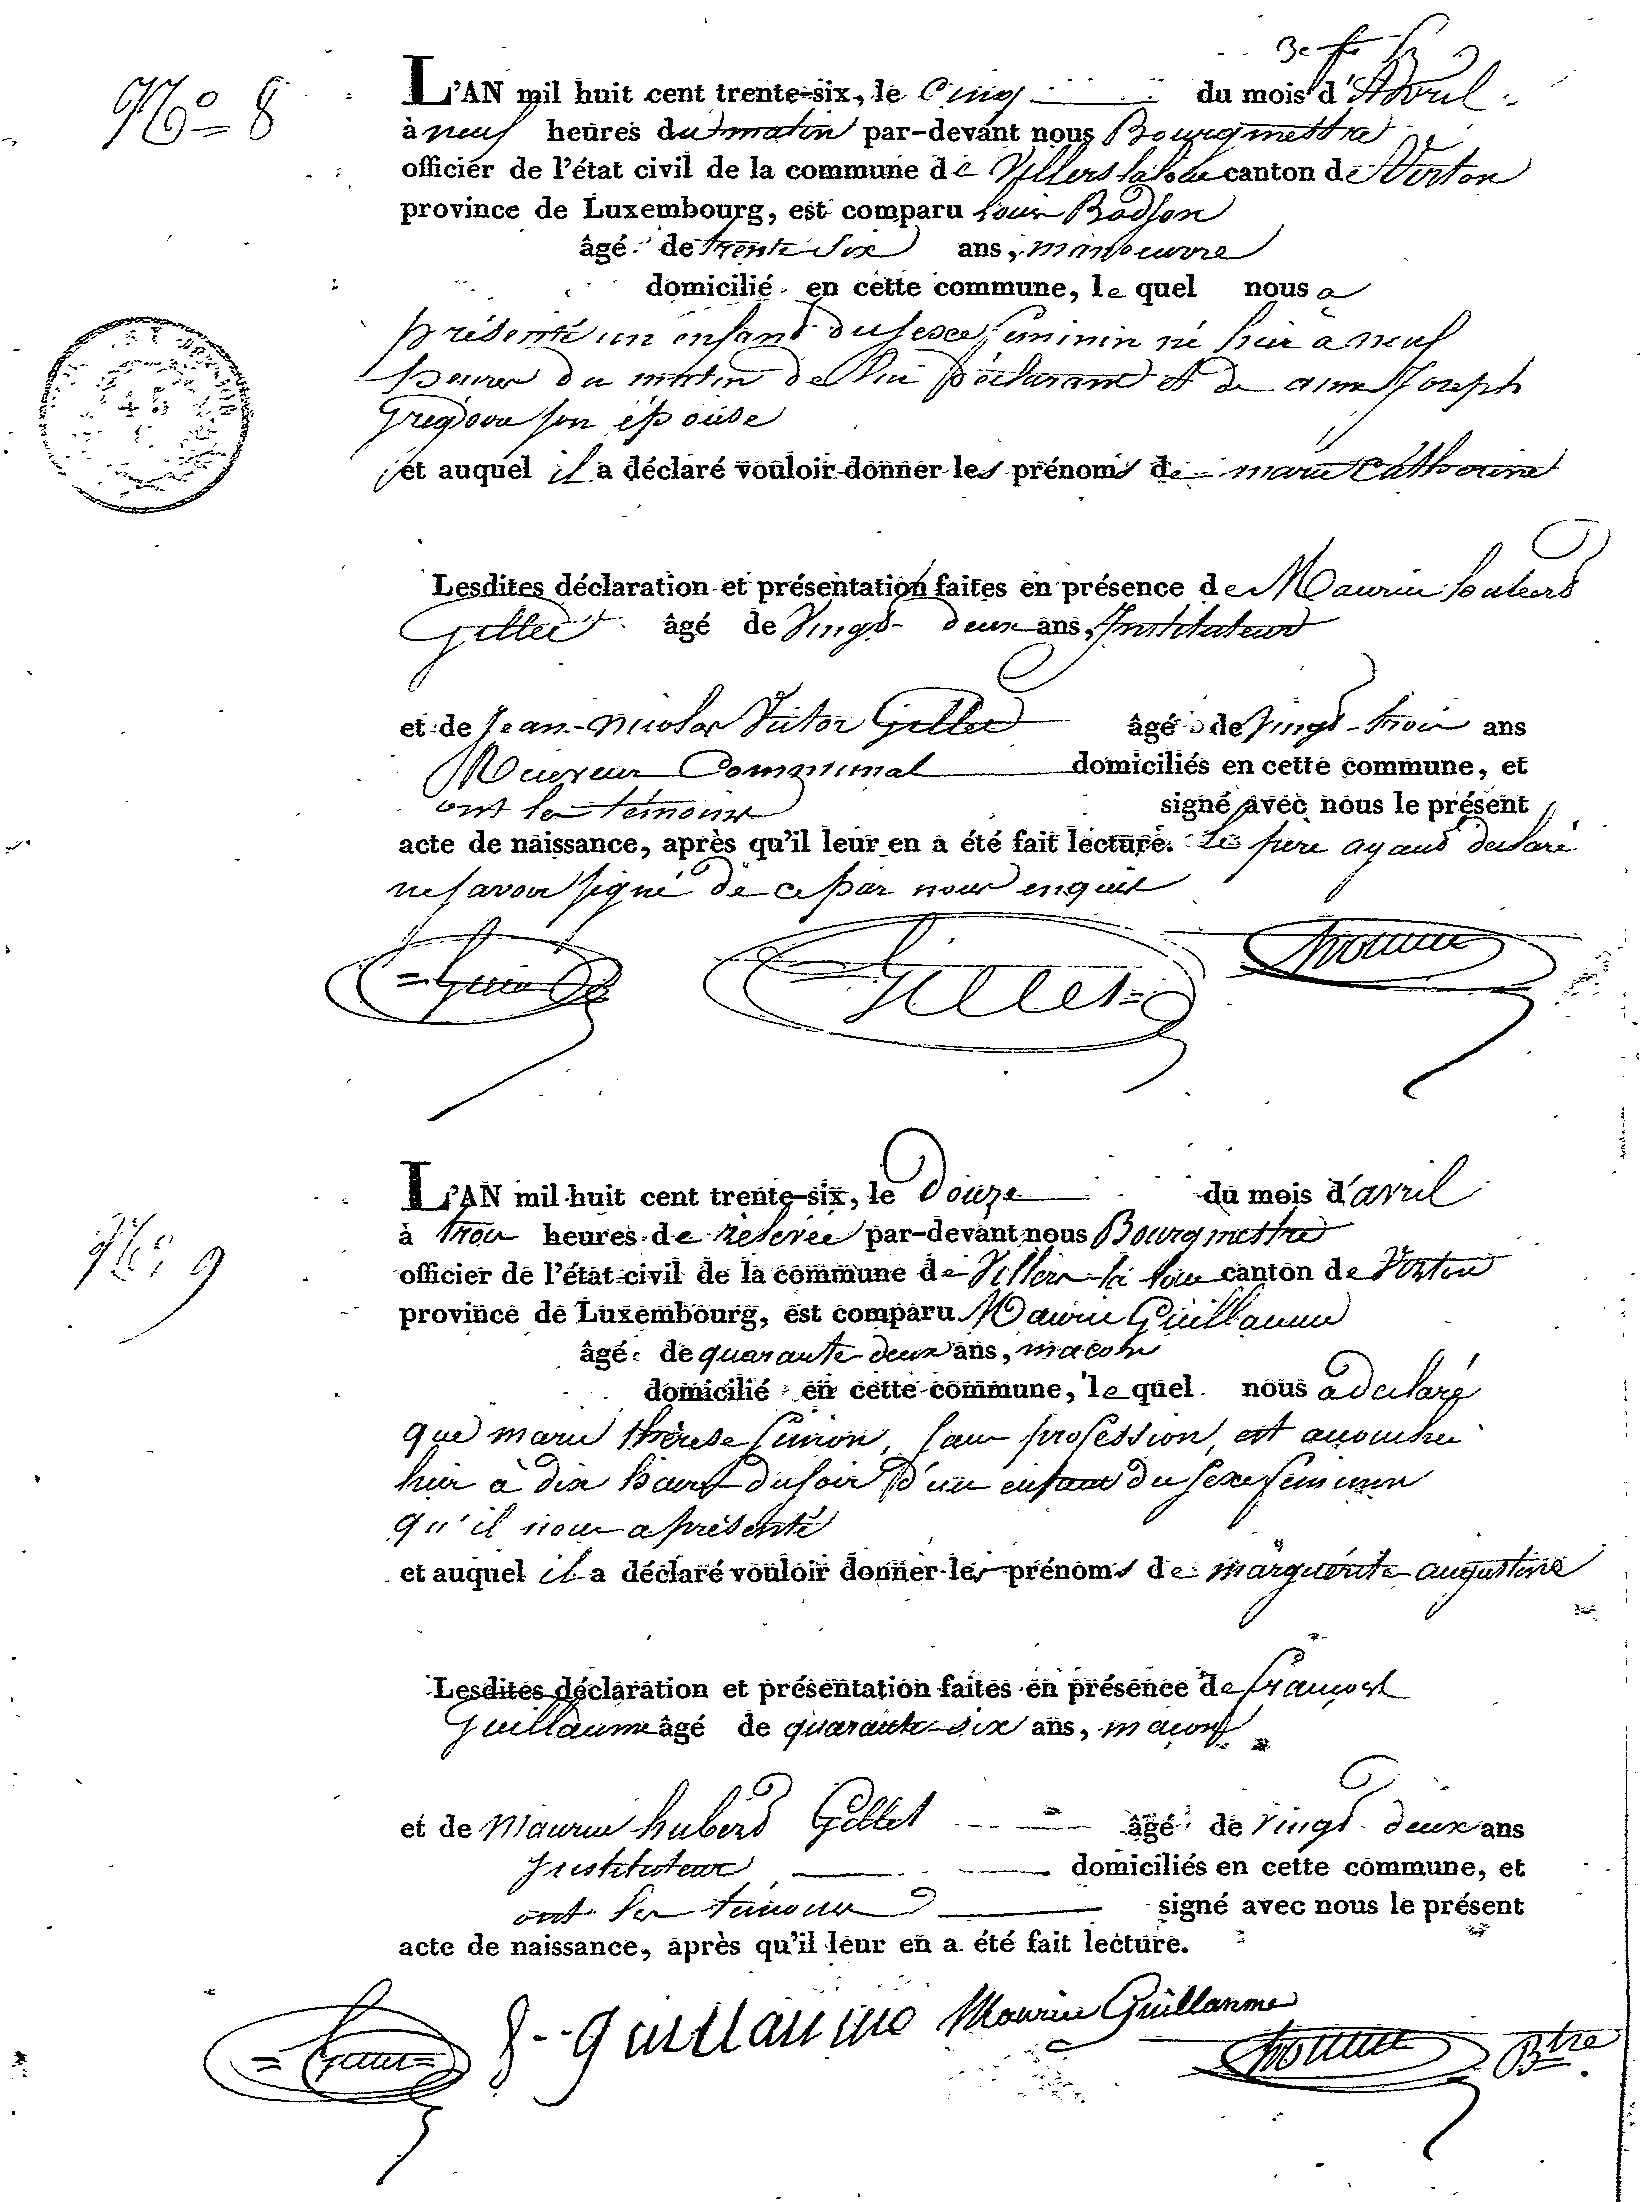 3e ffe
No 8
L'AN mil huit cent trente-six, le Cinq du mois d'Avril
à neuf heures du matin par-devant nous Bourgmestre
officier de l'état civil de la commune de Villers la loue canton de Virton
province de Luxembourg, est comparu Louis Bodson
âgé de trente Six ans, manoeuvre
domicilié en cette commune, le quel nous a
présenté un enfant du sexe feminin né hier à neuf
heures du matin de lui déclarant et de anne Joseph
Gregoire son épouse
et auquel il a déclaré vouloir donner les prénoms de marie Catherine
Lesdites déclaration et présentation faites en présence de Maurice hubert
Gillet âgé de Vingt deux ans, Instituteur
et de Jean-nicolas Victor Gillet âgé de vingt-trois ans
Receveur Communal domiciliés en cette commune, et
ont les témoins signé avec nous le présent
acte de naissance, après qu'il leur en a été fait lecture. Le père ayant déclaré
ne savoir signé de ce par nous enquis
Gillet
45
L'AN mil huit cent trente-six, le Douze du mois d'avril
No 9
à trois heures de relevée par-devant nous Bourgmestre
officier de l'état civil de la commune de Villers la loue canton de Virton
province de Luxembourg, est comparu Maurice Guillaume
âgé de quarante deux ans, macon
domicilié en cette commune, le quel nous a déclaré
que marie thérese Simon, sans profession, est accouchée
hier à dix heures du soir d'un enfant du sexe feminin
qu'il nous a présenté
et auquel il a déclaré vouloir donner les prénoms de marguerite augustine
Lesdites déclaration et présentation faites en présence de francois
Guillaume âgé de quarante-six ans, maçon
et de Maurice hubert Gillet âgé de vingt deux ans
Instituteur domiciliés en cette commune, et
ont les témoins signé avec nous le présent
acte de naissance, après qu'il leur en a été fait lecture.
f-- guillaume Maurice Guillaume
Btre